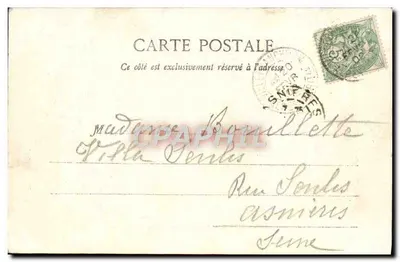 CARTE POSTALE
Ce côté est exclusivement réservé à l'adresse
ASNIERES
CPAPHIL
Madame Bouillette
Villa Senlis
Rue Senlis
asnieres
Seine